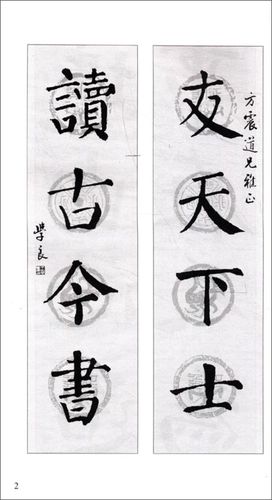 方震道兄雅正
友天下士
讀古今書
學良
2